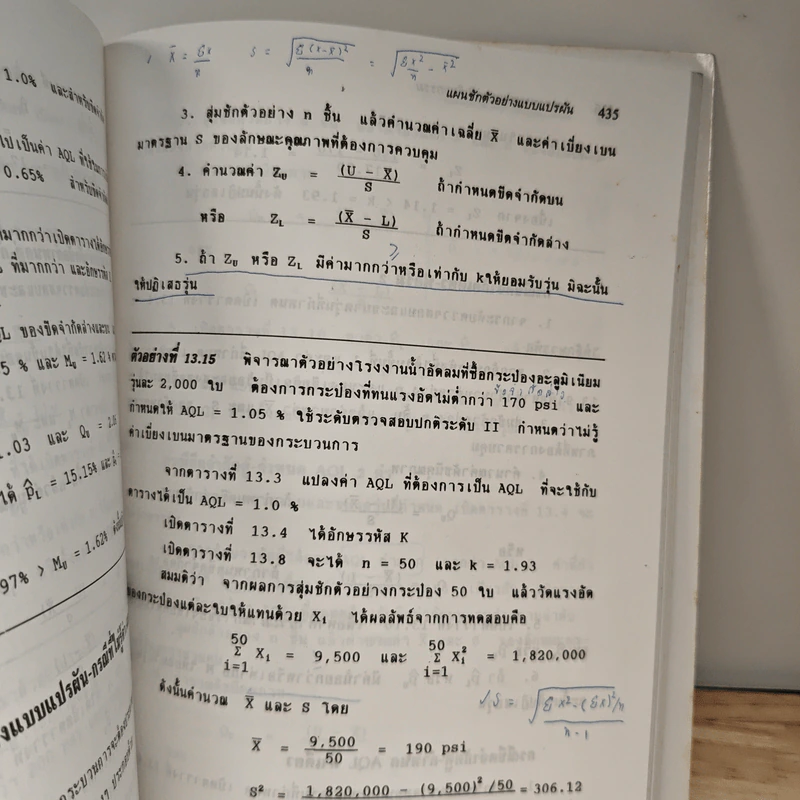 X̄ = Σx/n   S = √(Σ(x-x̄)²/n) = √(Σx²/n - x̄²)
แผนชักตัวอย่างแบบแปรผัน 435
3. สุ่มชักตัวอย่าง n ชิ้น แล้วคำนวณค่าเฉลี่ย X̄ และค่าเบี่ยงเบน
มาตรฐาน S ของลักษณะคุณภาพที่ต้องการควบคุม
4. คำนวณค่า Z_U = (U - X̄)/S ถ้ากำหนดขีดจำกัดบน
หรือ Z_L = (X̄ - L)/S ถ้ากำหนดขีดจำกัดล่าง
≥
5. ถ้า Z_U หรือ Z_L มีค่ามากกว่าหรือเท่ากับ kให้ยอมรับรุ่น มิฉะนั้น
ให้ปฏิเสธรุ่น
ตัวอย่างที่ 13.15 พิจารณาตัวอย่างโรงงานน้ำอัดลมที่ซื้อกระป๋องอะลูมิเนียม
รุ่นละ 2,000 ใบ ต้องการกระป๋องที่ทนแรงอัดไม่ต่ำกว่า 170 psi และ
กำหนดให้ AQL = 1.05 % ใช้ระดับตรวจสอบปกติระดับ II กำหนดว่าไม่รู้
ค่าเบี่ยงเบนมาตรฐานของกระบวนการ
จากตารางที่ 13.3 แปลงค่า AQL ที่ต้องการเป็น AQL ที่จะใช้กับ
ตารางได้เป็น AQL = 1.0 %
เปิดตารางที่ 13.4 ได้อักษรรหัส K
เปิดตารางที่ 13.8 จะได้ n = 50 และ k = 1.93
สมมติว่า จากผลการสุ่มชักตัวอย่างกระป๋อง 50 ใบ แล้ววัดแรงอัด
ของกระป๋องแต่ละใบให้แทนด้วย X_i ได้ผลลัพธ์จากการทดสอบคือ
50 Σ i=1 X_i = 9,500 และ 50 Σ i=1 X_i² = 1,820,000
ดังนั้นคำนวณ X̄ และ S โดย
√ S = √((Σx² - (Σx)²/n)/(n-1))
X̄ = 9,500/50 = 190 psi
S² = 1,820,000 - (9,500)²/50 = 306.12
1.0% และสำหรับขีดจำ
ไปเป็นค่า AQL ที่ใช้ใน
0.65% สำหรับขีดจำ
ที่มากกว่า และอักษรรหัส
QL ของขีดจำกัดล่างและ
5 % และ M_U = 1.62
1.03 และ Q_U =
ได้ P̂_L = 15.15%
97% > M_U = 1.62%
งแบบแปรผัน-กรณีที่ไม่รู้